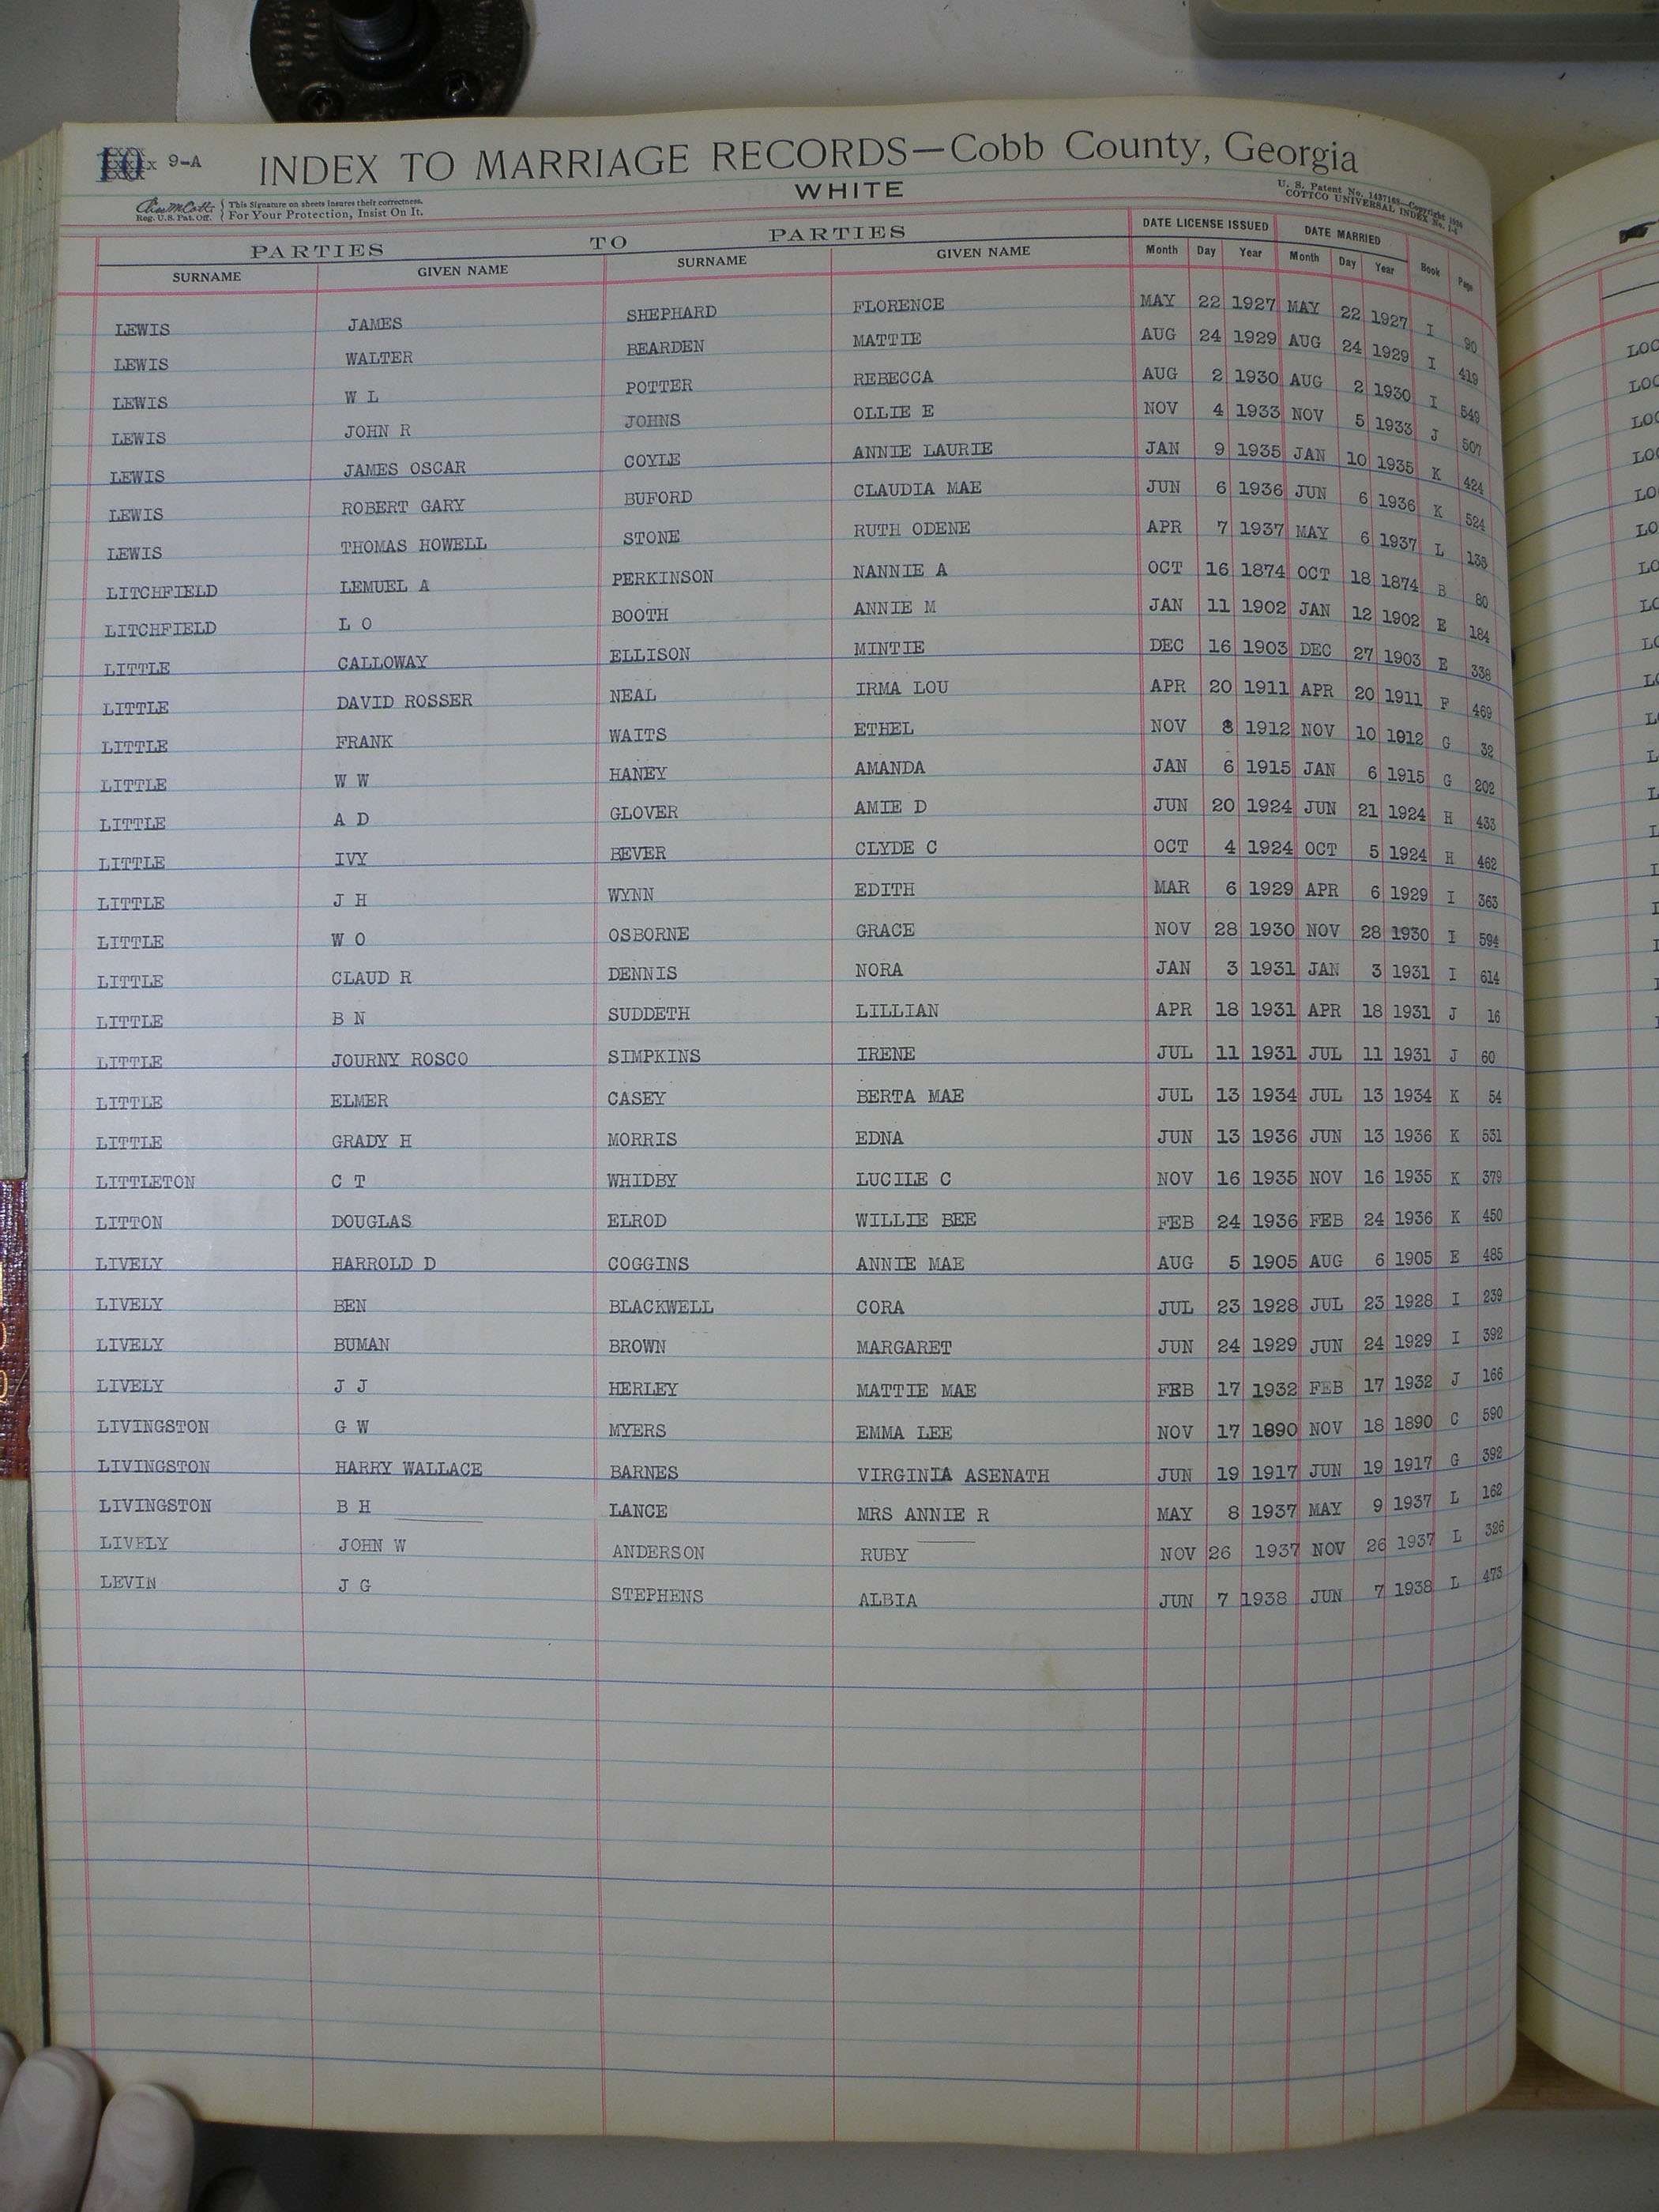 10 9-A INDEX TO MARRIAGE RECORDS—Cobb County, Georgia
WHITE
Reg. U.S. Pat. Off. This Signature on sheets insures their correctness.
For Your Protection, Insist On It.
U. S. Patent No. 1437168—Copyright
COTTCO UNIVERSAL INDEX No.
PARTIES TO PARTIES DATE LICENSE ISSUED DATE MARRIED
SURNAME GIVEN NAME SURNAME GIVEN NAME Month Day Year Month Day Year Book Page
LEWIS JAMES SHEPHARD FLORENCE MAY 22 1927 MAY 22 1927 I 90
LEWIS WALTER BEARDEN MATTIE AUG 24 1929 AUG 24 1929 I 419
LEWIS W L POTTER REBECCA AUG 2 1930 AUG 2 1930 I 549
LEWIS JOHN R JOHNS OLLIE E NOV 4 1933 NOV 5 1933 J 507
LEWIS JAMES OSCAR COYLE ANNIE LAURIE JAN 9 1935 JAN 10 1935 K 424
LEWIS ROBERT GARY BUFORD CLAUDIA MAE JUN 6 1936 JUN 6 1936 K 524
LEWIS THOMAS HOWELL STONE RUTH ODENE APR 7 1937 MAY 6 1937 L 138
LITCHFIELD LEMUEL A PERKINSON NANNIE A OCT 16 1874 OCT 18 1874 B 80
LITCHFIELD L O BOOTH ANNIE M JAN 11 1902 JAN 12 1902 E 184
LITTLE CALLOWAY ELLISON MINTIE DEC 16 1903 DEC 27 1903 E 338
LITTLE DAVID ROSSER NEAL IRMA LOU APR 20 1911 APR 20 1911 F 469
LITTLE FRANK WAITS ETHEL NOV 8 1912 NOV 10 1912 G 32
LITTLE W W HANEY AMANDA JAN 6 1915 JAN 6 1915 G 202
LITTLE A D GLOVER AMIE D JUN 20 1924 JUN 21 1924 H 433
LITTLE IVY BEVER CLYDE C OCT 4 1924 OCT 5 1924 H 462
LITTLE J H WYNN EDITH MAR 6 1929 APR 6 1929 I 363
LITTLE W O OSBORNE GRACE NOV 28 1930 NOV 28 1930 I 594
LITTLE CLAUD R DENNIS NORA JAN 3 1931 JAN 3 1931 I 614
LITTLE B N SUDDETH LILLIAN APR 18 1931 APR 18 1931 J 16
LITTLE JOURNY ROSCO SIMPKINS IRENE JUL 11 1931 JUL 11 1931 J 60
LITTLE ELMER CASEY BERTA MAE JUL 13 1934 JUL 13 1934 K 54
LITTLE GRADY H MORRIS EDNA JUN 13 1936 JUN 13 1936 K 531
LITTLETON C T WHIDBY LUCILE C NOV 16 1935 NOV 16 1935 K 379
LITTON DOUGLAS ELROD WILLIE BEE FEB 24 1936 FEB 24 1936 K 450
LIVELY HARROLD D COGGINS ANNIE MAE AUG 5 1905 AUG 6 1905 E 485
LIVELY BEN BLACKWELL CORA JUL 23 1928 JUL 23 1928 I 239
LIVELY BUMAN BROWN MARGARET JUN 24 1929 JUN 24 1929 I 392
LIVELY J J HERLEY MATTIE MAE FEB 17 1932 FEB 17 1932 J 166
LIVINGSTON G W MYERS EMMA LEE NOV 17 1890 NOV 18 1890 C 590
LIVINGSTON HARRY WALLACE BARNES VIRGINIA ASENATH JUN 19 1917 JUN 19 1917 G 392
LIVINGSTON B H LANCE MRS ANNIE R MAY 8 1937 MAY 9 1937 L 162
LIVELY JOHN W ANDERSON RUBY NOV 26 1937 NOV 26 1937 L 326
LEVIN J G STEPHENS ALBIA JUN 7 1938 JUN 7 1938 L 473